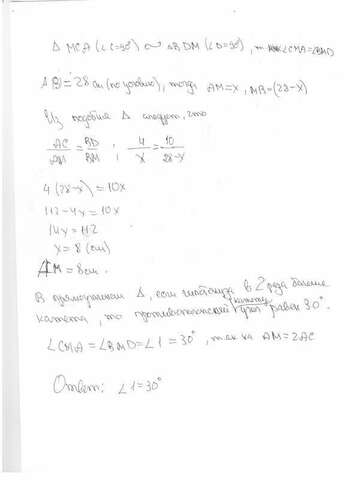 Δ MCA (∠C=90°) ∾ ΔBDM (∠D=90°), т.к. ∠CMA=∠BMD
AB=28 см (по условию), тогда AM=x, MB=(28-x)
Из подобия Δ следует, что
AC/AM = BD/BM ; 4/x = 10/28-x
4(28-x)=10x
112-4x=10x
14x=112
x=8 (см)
AM=8см.
В прямоугольном Δ, если гипотенуза в 2 раза больше
катета, то противолежащий катету угол равен 30°.
∠CMA=∠BMD=∠1=30°, так ка AM=2AC
Ответ: ∠1=30°